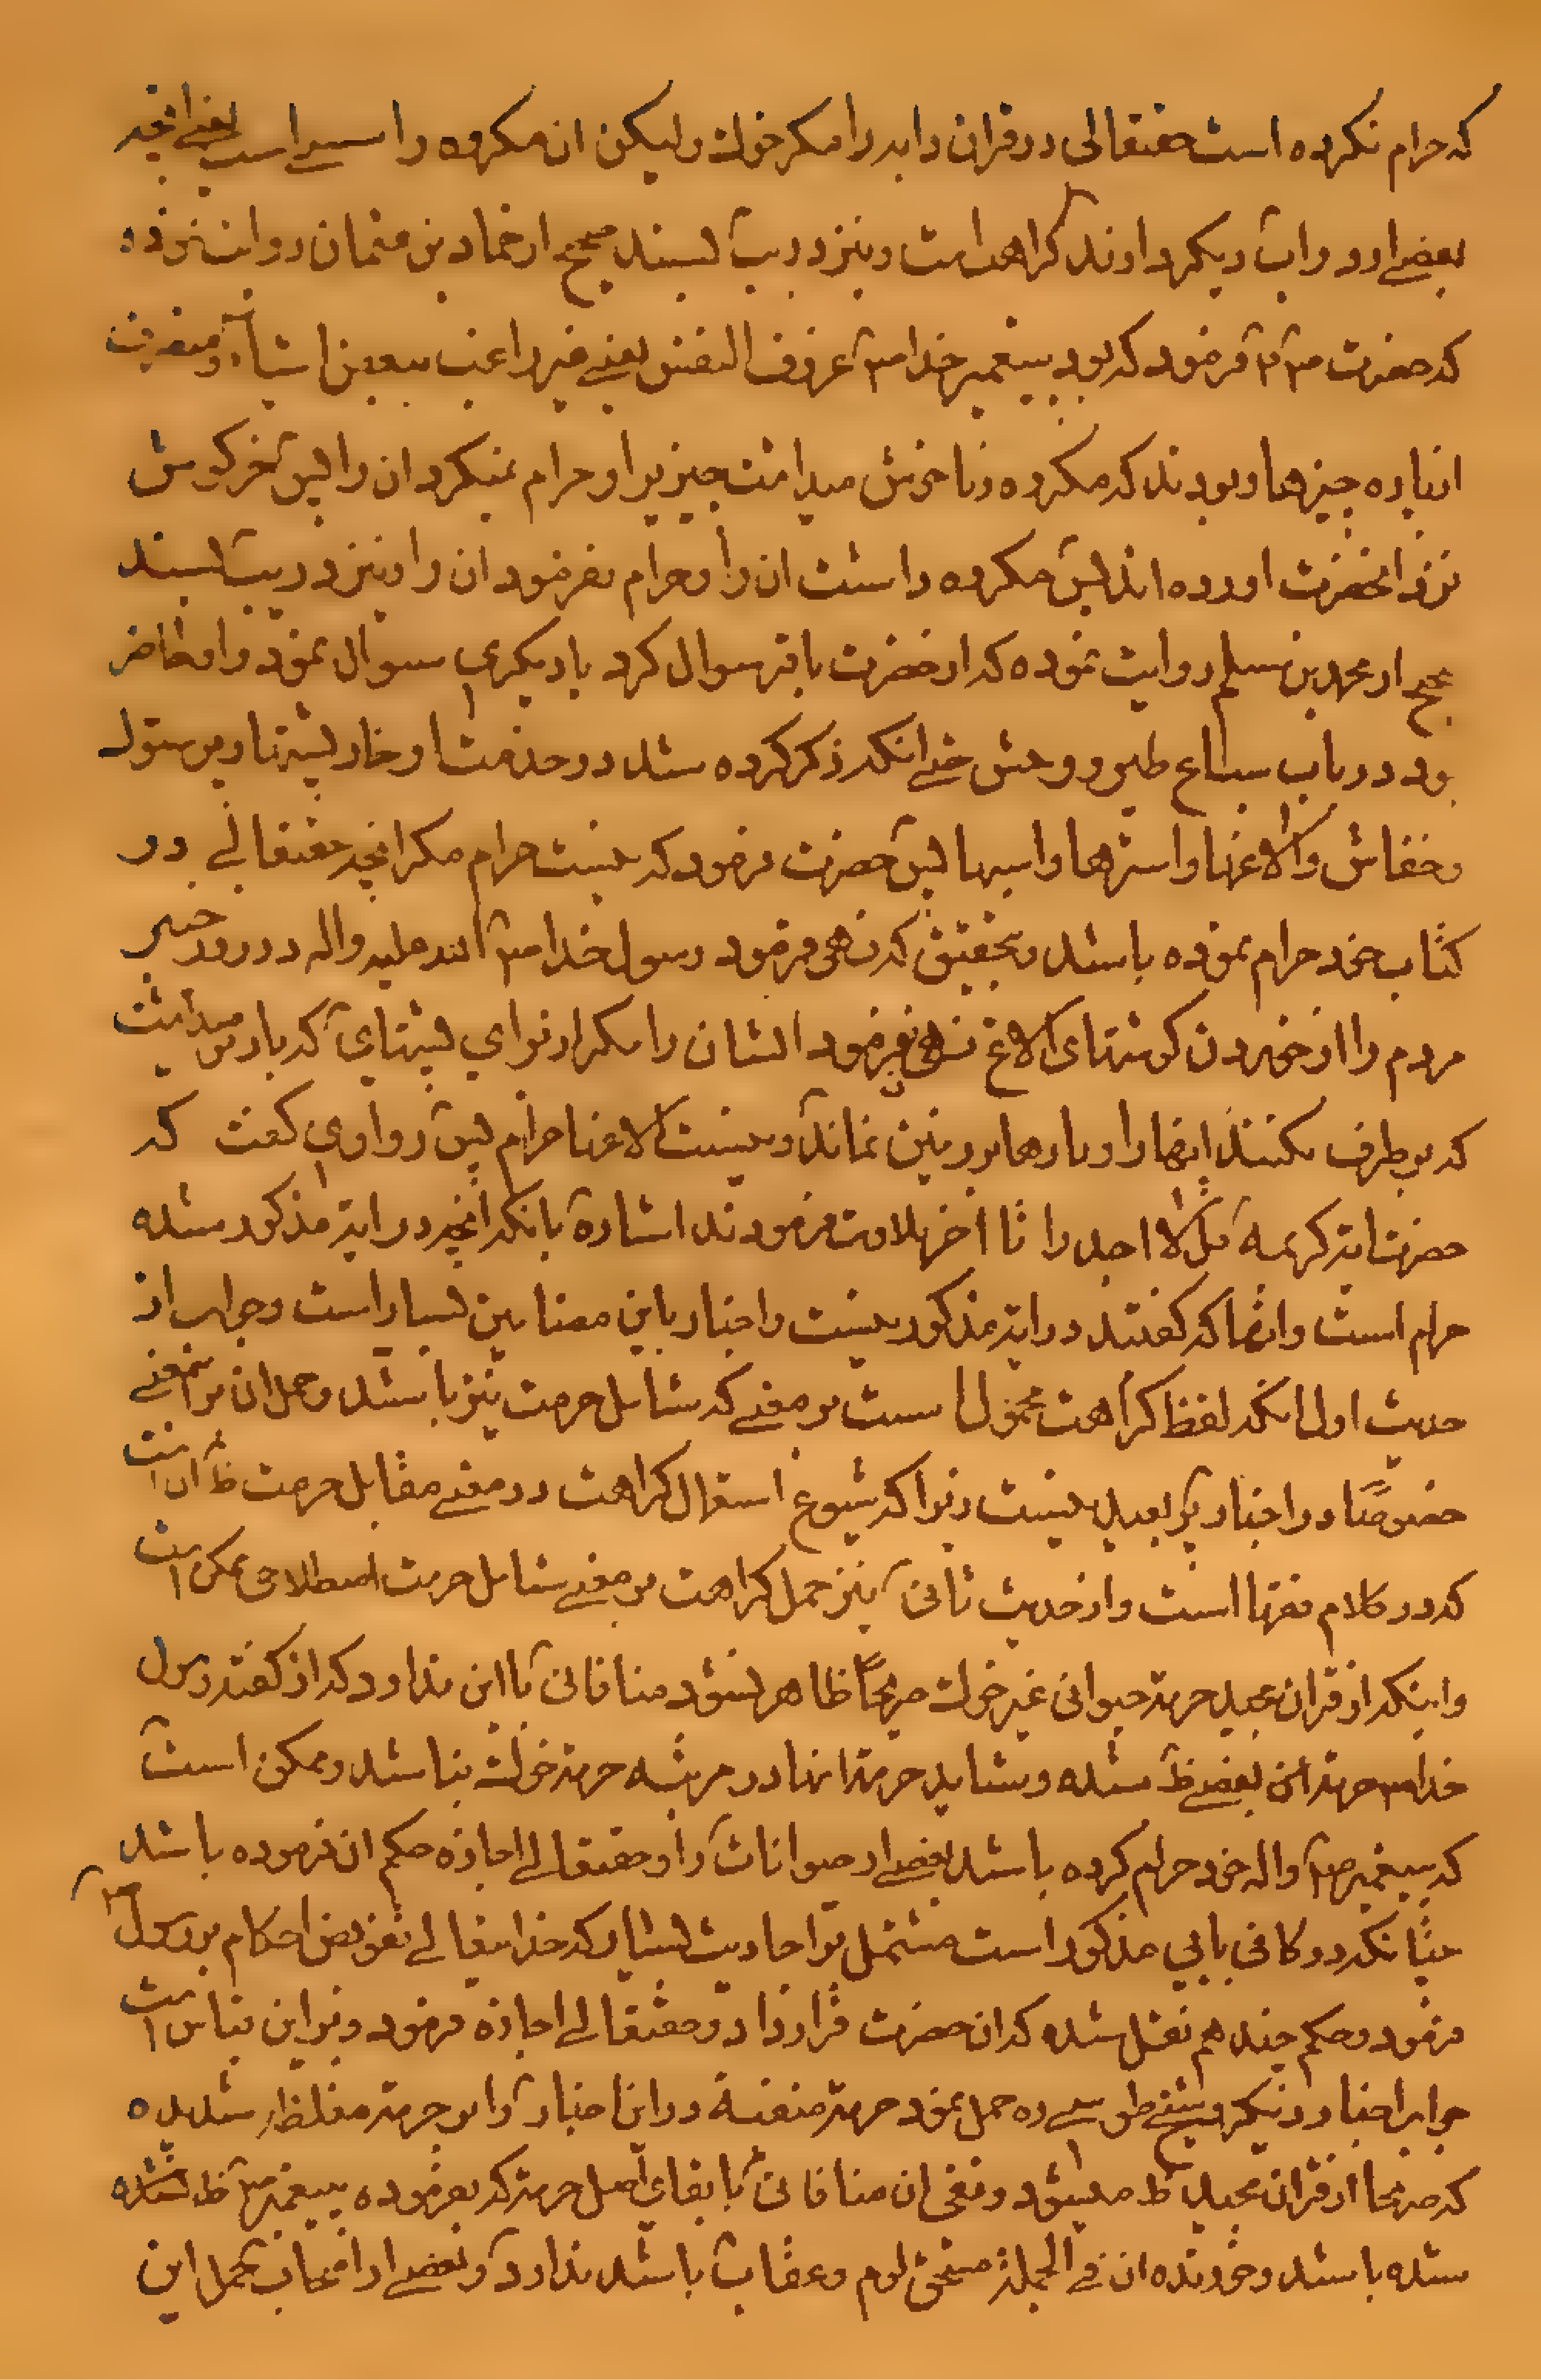 که حرام نکرده است حقتعالی در قران دابه را مکر خوک ولیکن ان مکروه است یعنی انچه
بعضی در روایت دیکر داوند کراهت است ونیز در یب بسند صحیح از حماد بن عثمان روایت نموده
که حضرت ص۴ فرمود که بود پیغمبر خدا ص عزوف النفس یعنی غیر راغب ببعض اشیاء ومنصرف
از پاره چیزها وبودند که مکروه وناخوش میداشت چیزیرا وحرام نمیکرد ان را پس خرکوش
نزد انحضرت اورده اند پس مکروه داشت ان را وحرام نفرمود ان را ونیز در یب بسند
صحیح از محمد بن مسلم روایت نموده که از حضرت باقر سوال کرد یا دیکری سوال نمود واو حاضر
بود در باب سباع طیر ووحش حتی انکه ذکر کرده شد در خدمت او خارپشتها
وخفاش والاغها واسترها واسبها پس حضرت فرمود که نیست حرام مکر انچه حقتعالی در
کتاب خود حرام نموده باشد وبتحقیق که نهی فرمود رسول خدا ص الله علیه واله در روز خیبر
مردم را از خوردن کوشتهای الاغ نهی نفرمود ایشان را مکر از برای پشتهای که بار میداشت
که بر طرف نکنند انها را وبارها بر زمین نماند ونیست الاغها حرام پس راوی کفت که
حضرت ایة کریمه قل لا اجد را تا اخر تلاوت فرمودند اشاره بانکه انچه در ایة مذکور شده
حرام است وانها که کفتند در ایة مذکور نیست واخبار باین مضامین بسیار است وجواب از
حدیث اول انکه لفظ کراهت محمول است بر معنی که شامل حرمت نیز باشد وحمل ان بر اینمعنی
خصوصًا در اخبار بعید نیست زیرا که شیوع استعمال کراهت در معنی مقابل حرمت ظ ان است
که در کلام فقها است واز حدیث ثانی نیز حمل کراهت بر معنی شامل حرمت اصطلاحی ممکن است
واینکه از قران مجید حرمة حیوانی غیر خوک صریحًا ظاهر نشود منافاتی با این ندارد که از کفته رسول
خدا ص حرمة بعضی ظ شده وشاید حرمة انها در مرتبه حرمة خوک نباشد وممکن است
که پیغمبر ص واله خود حرام کرده باشد بعضی از حیوانات را وحقتعالی اجازه حکم ان فرموده باشد
چنانکه در کافی بابی مذکور است مشتمل بر احادیث بسیار که خدایتعالی تفویض احکام برسول ص
فرمود وحکم چند هم نقل شده که ان حضرت قرار داد وحقتعالی اجازه فرمود وبر این قیاس است
جواب اخبار دیکر وشیخ طوسی ره حمل نمود حرمة منفیة در این اخبار را بر حرمة مغلظه شدیده
که صریحا از قران مجید ظ میشود ونفی ان منافاتی با بقای اصل حرمة که بفرموده پیغمبر ص ظ شده
شده باشد وخورنده ان فی الجملة مستحق لوم وعقاب باشد ندارد وبعضی از اصحاب حمل این